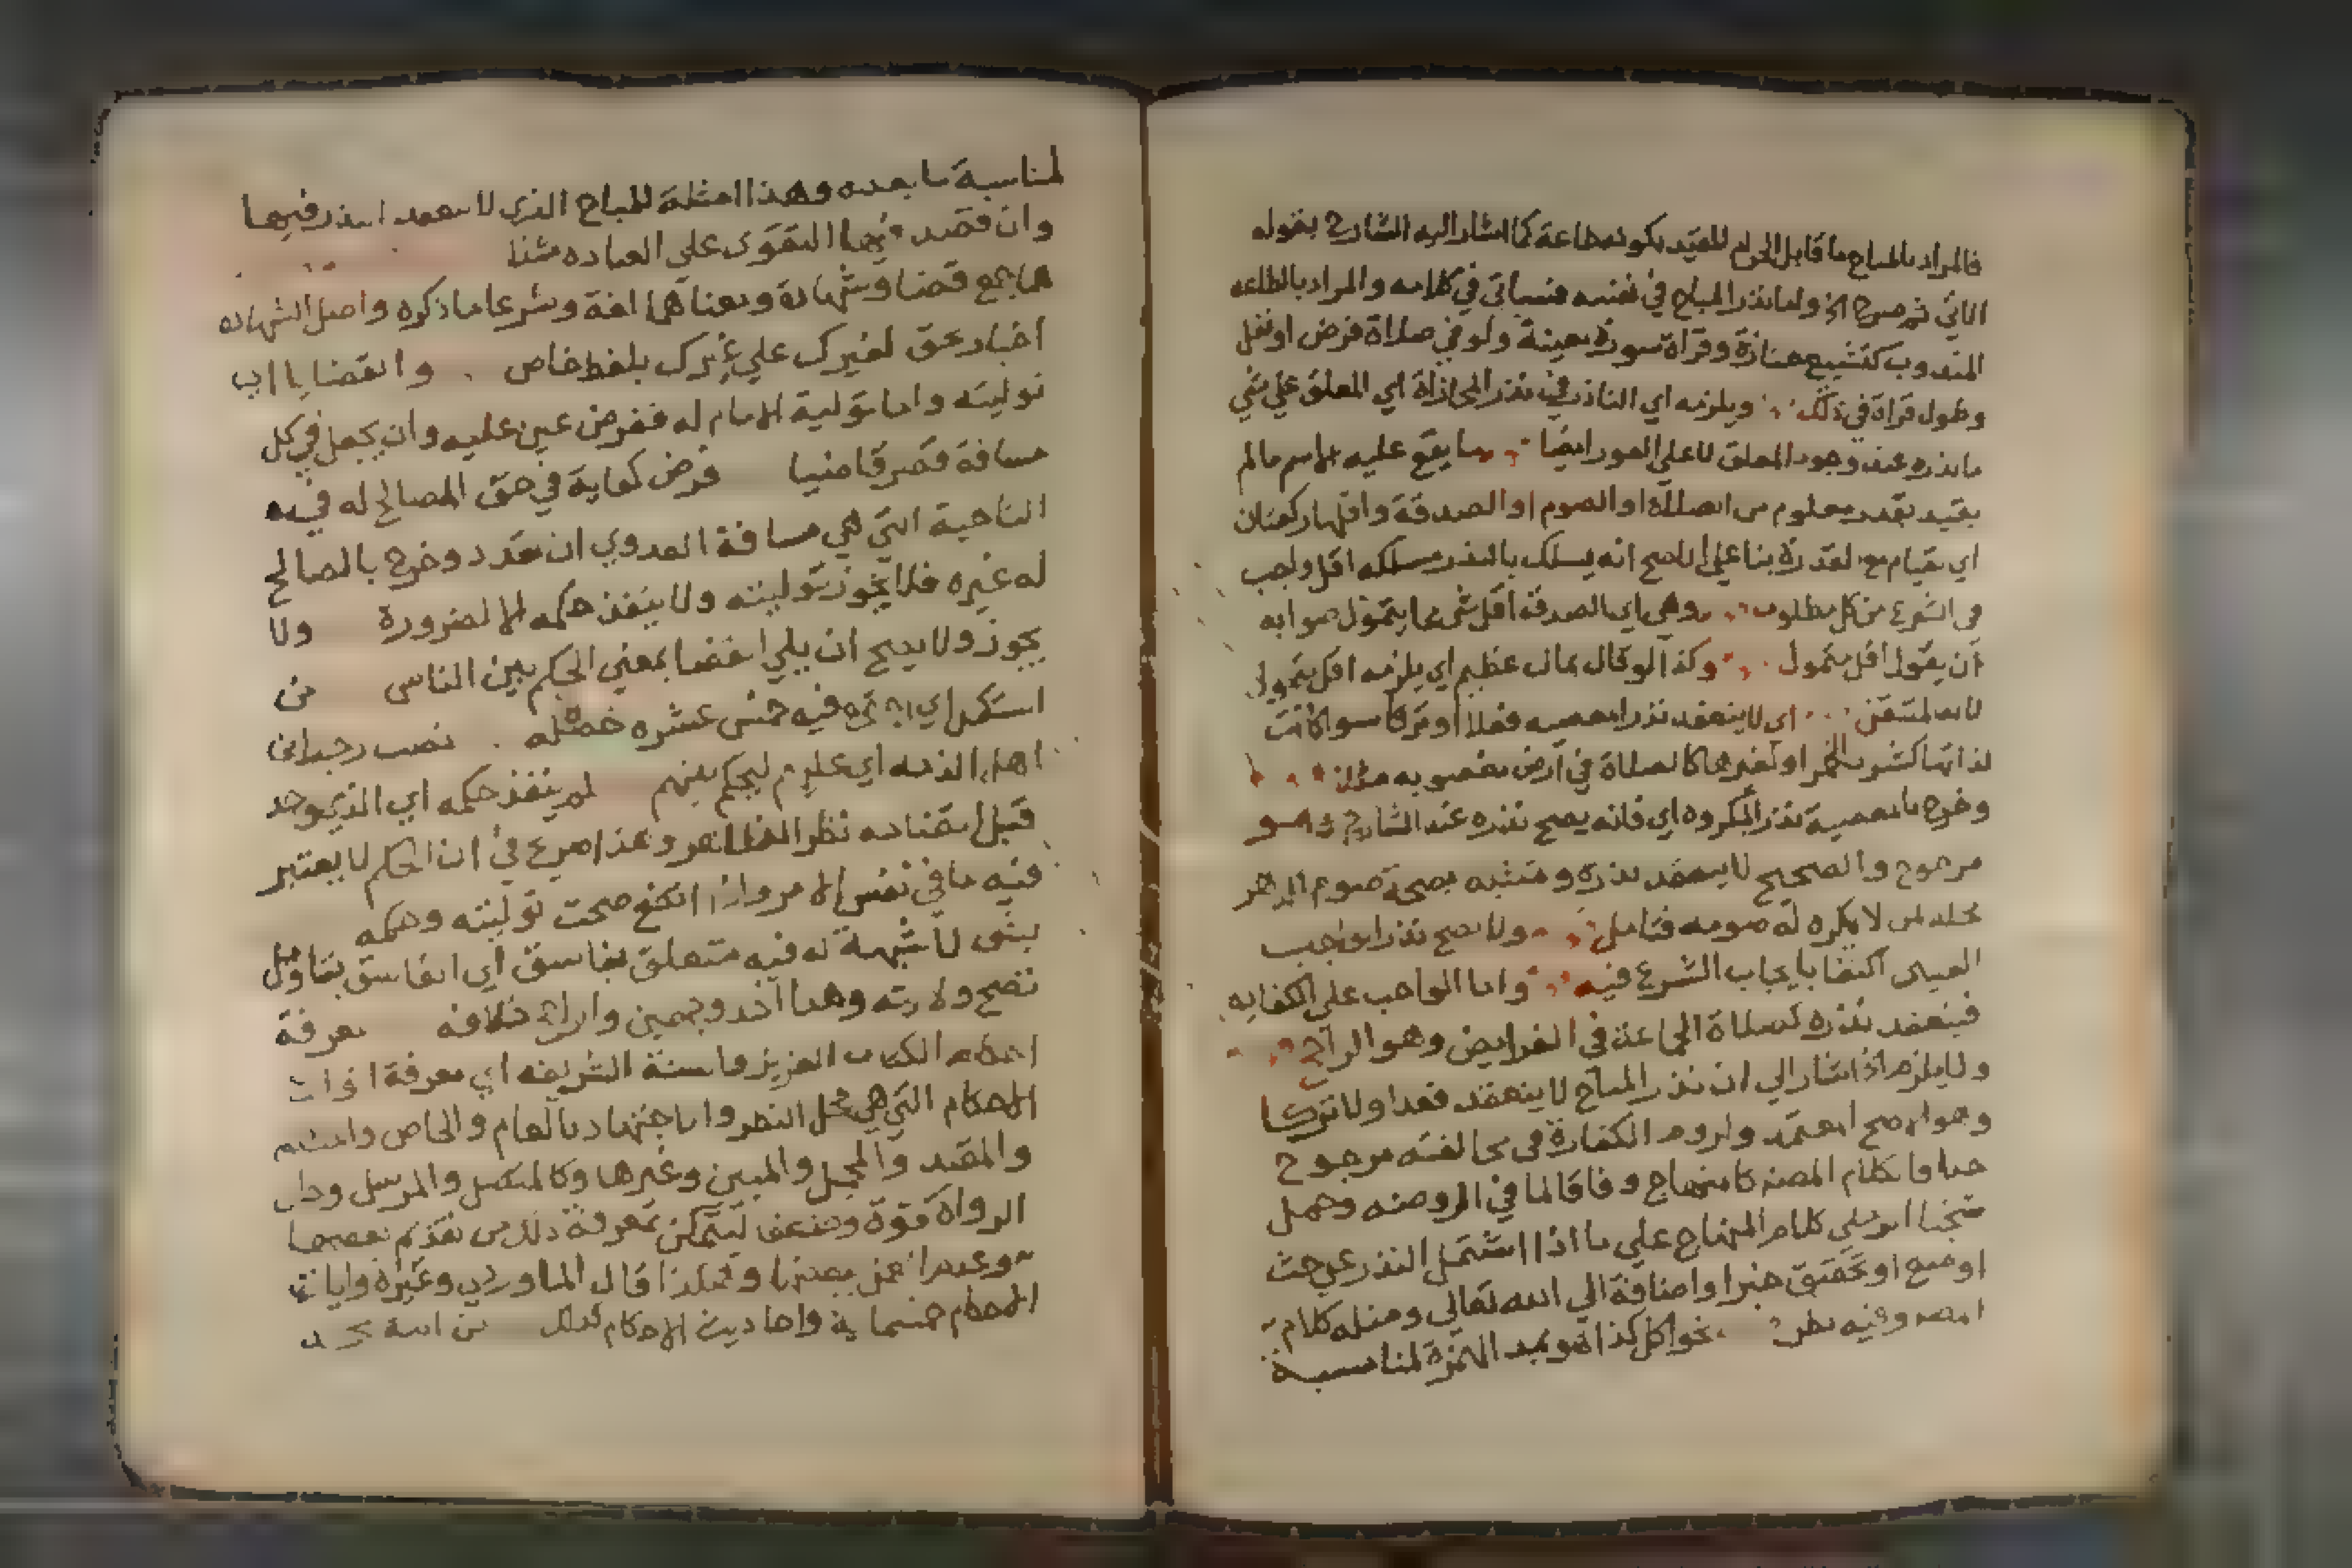 فالمراد بالمباح ما قابل الحرام للمقيد بكونه طاعة كما اشار اليه الشارح بقوله
الاتي ثم صرح الخ واما نذر المباح في نفسه فسياتي في كلامه والمراد بالطاعه
المندوب كتشييع جنازة وقراة سورة معينة ولو في صلاة فرض او نفل
وطول قراة في ذلك ويلزمه اي الناذر في نذر المجازاة اي المعلق علي شي
ما نذره عند وجود المعلق لا علي الفور ايضا ما يقع عليه الاسم ما لم
يقيد بقدر معلوم من الصلاة او الصوم او الصدقة واقلها ركعتان
اي بقيام مع القدرة بنا علي الاصح انه يسلك بالنذر مسلكه اقل واجب
في الشرع من كل مطلوب وهي اي الصدقة اقل شي مما يتمول صوابه
ان يقول اقل متمول وكذا لو قال بمال عظيم اي يلزمه اقل متمول
لانه المتيقن اي لا ينعقد نذر المعصيه فعلا او تركا سوا كانت
لذاتها كشرب الخمر او لغيرها كالصلاة في ارض مغصوبه مثلا
وخرج بالمعصية نذر المكروه اي فانه يصح نذره عند الشارح وهو
مرجوح والصحيح لا ينعقد نذره ومثله بصحة صوم الدهر
محله لمن لا يكره له صومه فتامل ولا يصح نذر الواجب
العيني اكتفا بايجاب الشرع فيه واما الواجب علي الكفايه
فينعقد نذره كصلاة الجماعة في الفرايض وهو الراجح
ولا يلزم الخ اشار الي ان نذر المباح لا ينعقد فعلا ولا تركا
وهو الاصح المعتمد ولزوم الكفارة في مخالفته مرجوح
خلافا لكلام المصنف كالمنهاج وفاقا لما في الروضه وحمل
شيخنا الرملي كلام المنهاج علي ما اذا اشتمل النذر علي حث
او منع او تحقيق خبر او اضافة الي الله تعالي ومثله كلام
المصنف وفيه نظر نحو اكل كذا هو بمد الهمزة لمناسبة
لمناسبة ما بعده وهذا امثلة للمباح الذي لا ينعقد النذر فيها
وان قصد فيها التقوي علي العباده مثلا
هما جمع قضا وشهادة ومعناهما لغة وشرعا ما ذكره واصل الشهاده
اخبار بحق لغيرك علي غيرك بلفظ خاص والقضايا اي
توليته واما تولية الامام له ففرض عين عليه وان يجعل في كل
مسافة قصر قاضيا فرض كفاية في حق المصالح له في
الناحية التي هي مسافة العدوي ان تعدد وخرج بالصالح
له غيره فلا يجوز توليته ولا ينفذ حكمه الا لضرورة ولا
يجوز ولا يصح ان يلي القضا بمعني الحكم بين الناس من
استكمل اي اجتمع فيه خمس عشره خصله نصب رجل من
اهل الذمه اي عليهم ليحكم بينهم لم ينفذ حكمه اي الذي يوجد
قبل اسقناده نظر الظاهر وهذا صريح في ان الحكم لا يعتبر
فيه ما في نفس الامر واذا اتضح صحت توليته وحكمه
بشي لا شبهة له فيه متعلق بفاسق اي الفاسق بتاويل
تصح ولايته وهذا احد وجهين والراجح خلافه معرفة
احكام الكتاب العزيز والسنة الشريفه اي معرفة انواع
الاحكام التي هي محل النظر والاجتهاد بالعام والخاص والمبهم
والمقيد والمجمل والمبين وغيرها وكالمتصل والمرسل وحال
الرواة قوة وضعف ليتمكن بمعرفة ذلك من تقديم بعضها
وغيرها عن بعضها وهكذا قال الماوردي وغيره وايات
الاحكام خمسماية واحاديث الاحكام كذلك من امة محمد